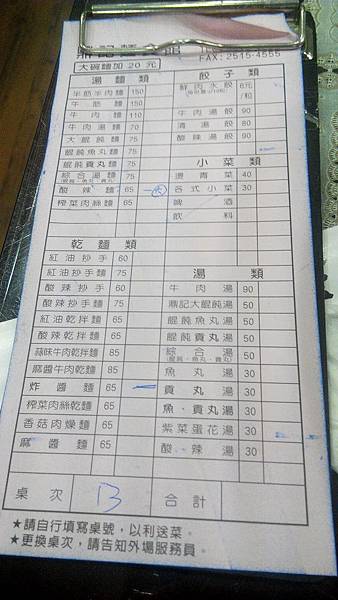 鼎記麵
FAX: 2515-4555
大碗麵加 20 元
湯麵類
半筋半肉麵 150
牛筋麵 150
牛肉麵 110
牛肉湯麵 70
大餛飩麵 75
餛飩魚丸麵 75
餛飩貢丸麵 75
綜合湯麵 75
(餛飩、魚丸、貢丸)
酸辣麵 65 一大
榨菜肉絲麵 65
乾麵類
紅油抄手 60
紅油抄手麵 75
酸辣抄手 60
酸辣抄手麵 75
紅油乾拌麵 65
酸辣乾拌麵 65
蒜味牛肉乾拌麵 85
麻醬牛肉乾麵 85
炸醬麵 65
榨菜肉絲乾麵 65
香菇肉燥麵 65
麻醬麵 65
餃子類
鮮肉水餃 8元/粒
牛肉湯餃 90
清湯餃 80
酸辣湯餃 90
小菜類
燙青菜 40
各式小菜 30
啤酒
飲料
湯類
牛肉湯 90
鼎記大餛飩湯 50
餛飩魚丸湯 50
餛飩貢丸湯 50
綜合湯 50
(餛飩、魚丸、貢丸)
魚丸湯 30
貢丸湯 30
魚、貢丸湯 30
紫菜蛋花湯 30
酸辣湯 30
桌次 13 合計
★請自行填寫桌號，以利送菜。
★更換桌次，請告知外場服務員。